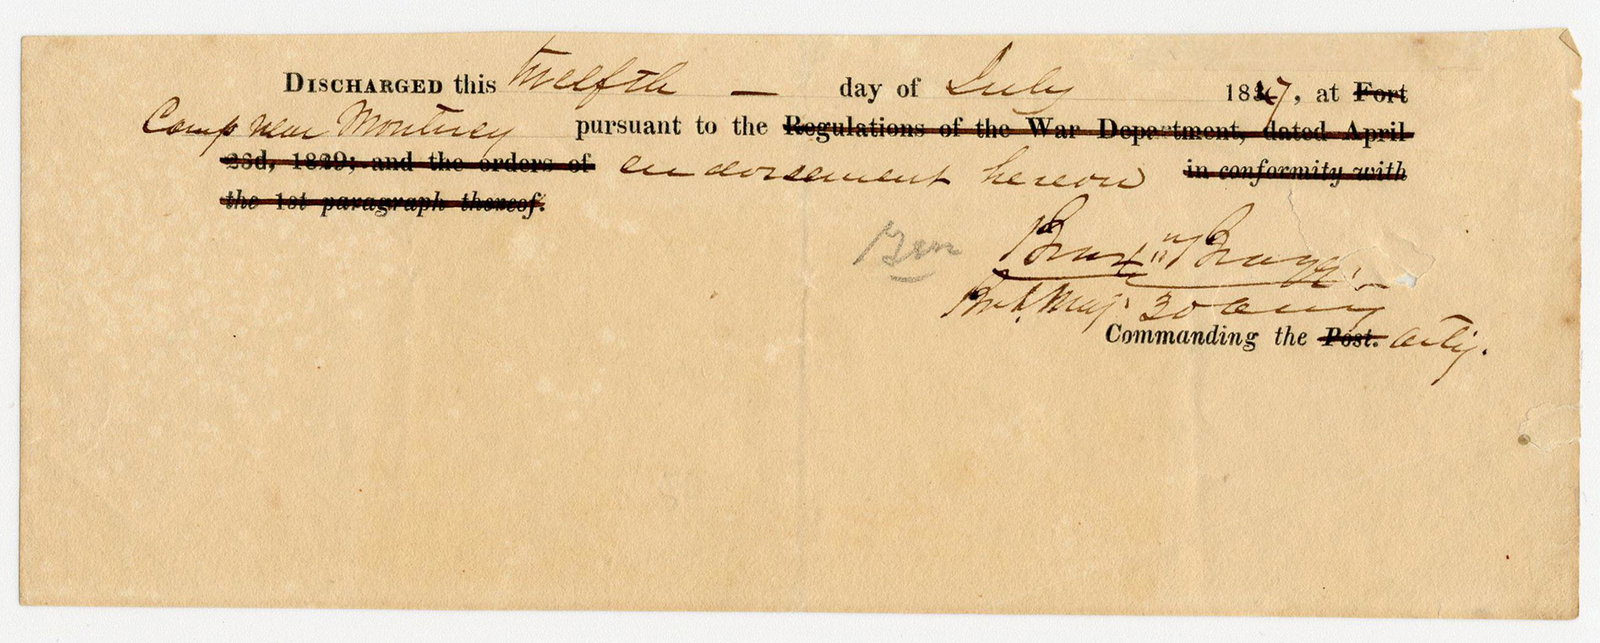 DISCHARGED this twelfth — day of July 1847, at Fort
Camp near Monterey pursuant to the Regulations of the War Department, dated April
23d, 1829; and the orders of endorsement hereon in conformity with
the 1st paragraph thereof.
Gen
Braxtn Bragg
Bvt. Maj. 3d Arty
Commanding the Post. Arty.